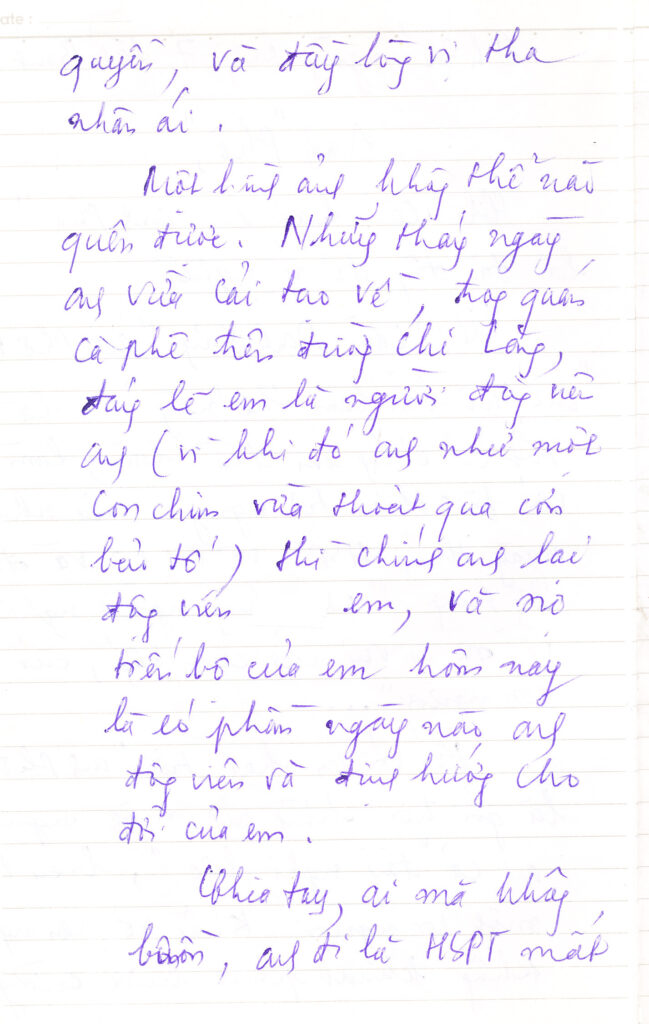 ate :
quyền, và đầy lòng vị tha
nhân ái.
Một hình ảnh không thể nào
quên được. Những tháng ngày
anh vừa cải tạo về, trong quán
cà phê trên đường Chi Lăng,
đáng lẽ em là người động viên
anh (vì khi đó anh như một
con chim vừa thoát qua cơn
bão tố) thì chính anh lại
động viên em, và sự
tiến bộ của em hôm nay
là có phần ngày nào anh
động viên và định hướng cho
đời của em.
Chia tay, ai mà không
buồn, anh đi là HSPT mất